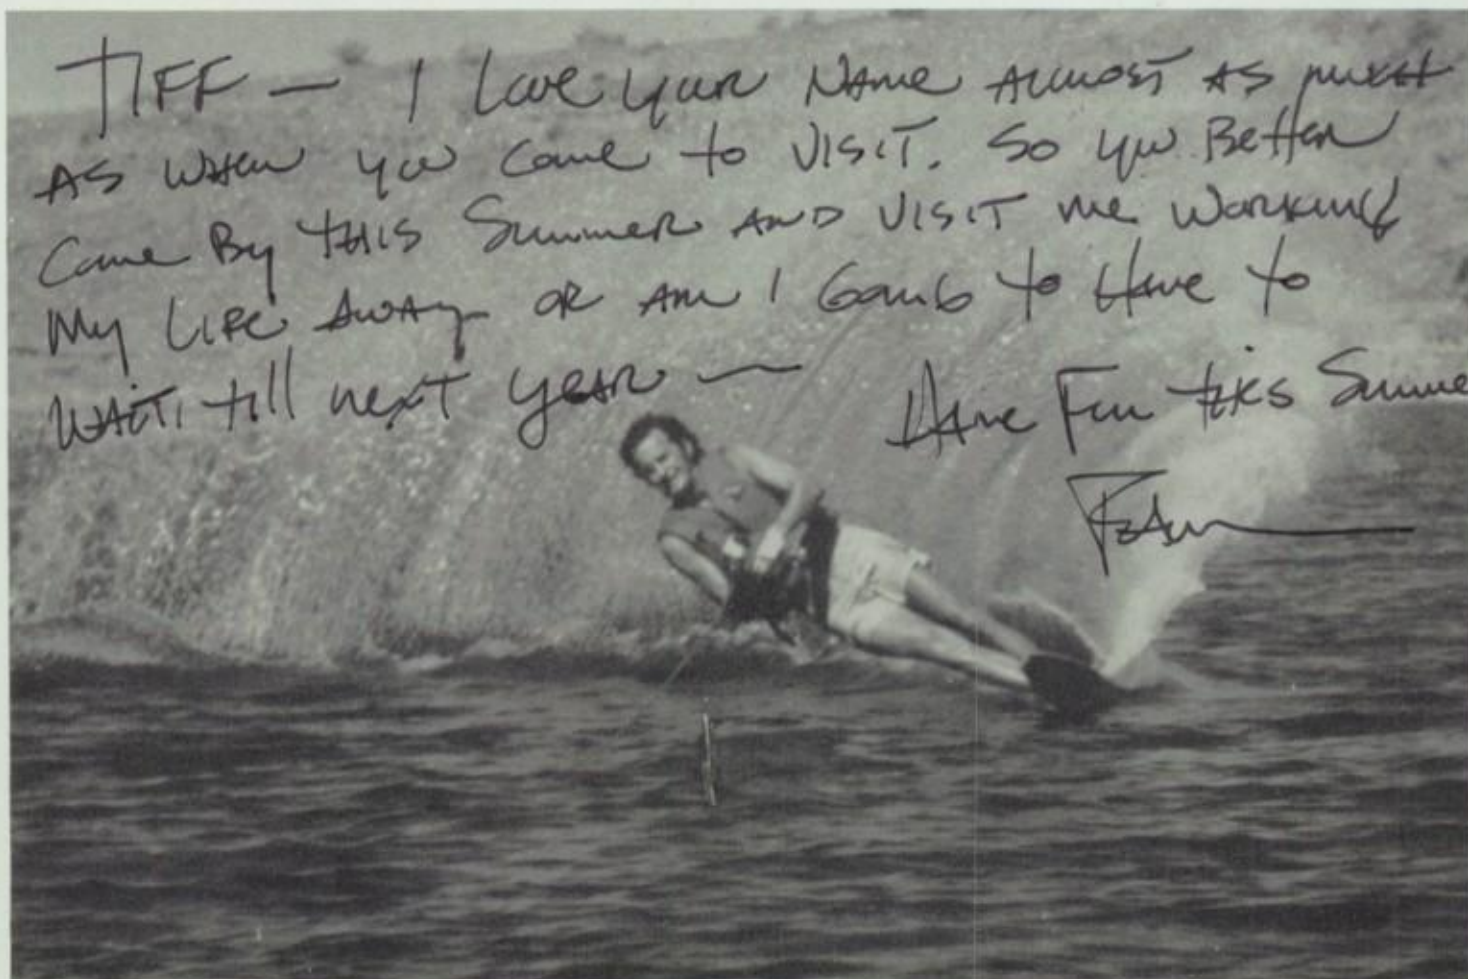 TIFF — I Love your NAME ALMOST AS MUCH
AS WHEN you come to VISIT. So you Better
Come By THIS Summer AND VISIT me WORKING
My LIFE AWAY OR AM I GOING to HAVE to
WAIT till next YEAR —
HAVE FUN THIS Summe